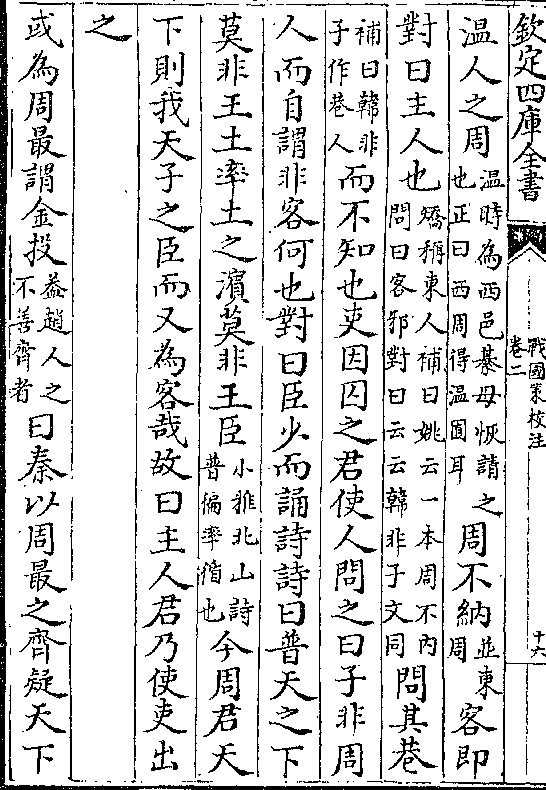 欽定四庫全書
戰國策校注
卷二
十六
温人之周温時為西邑綦母恢請之
也正曰西周得温囿耳
周不納並東
周
客即
對曰主人也矯稱東人補曰姚云一本周不內
問曰客邪對曰云云韓非子文同
問其巷
補曰韓非
子作巷人
而不知也吏因囚之君使人問之曰子非周
人而自謂非客何也對曰臣少而誦詩詩曰普天之下
莫非王土率土之濱莫非王臣小雅北山詩
普徧率循也
今周君天
下則我天子之臣而又為客哉故曰主人君乃使吏出
之
或為周最謂金投蓋趙人之
不善齊者
曰秦以周最之齊疑天下